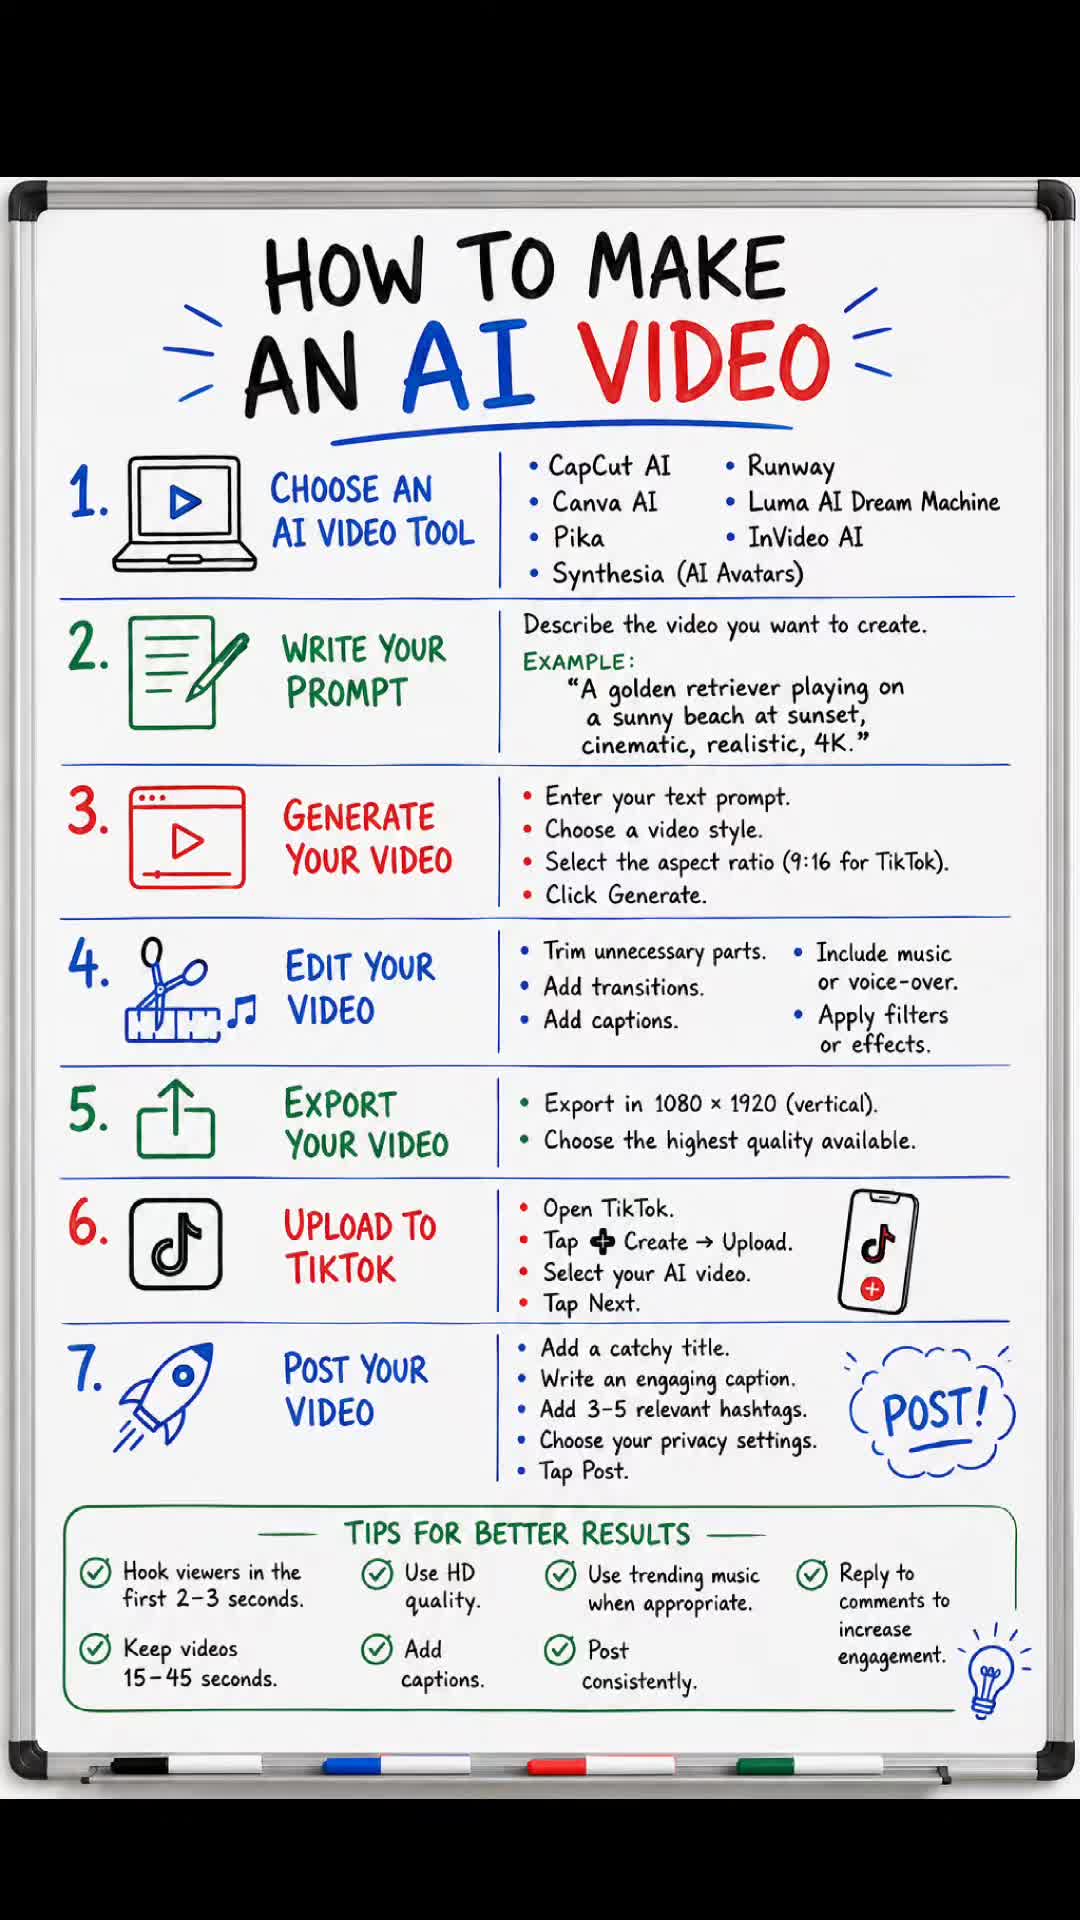 HOW TO MAKE
AN AI VIDEO
1.
CHOOSE AN
AI VIDEO TOOL
• CapCut AI
• Canva AI
• Pika
• Synthesia (AI Avatars)
• Runway
• Luma AI Dream Machine
• InVideo AI
2.
WRITE YOUR
PROMPT
Describe the video you want to create.
EXAMPLE:
“A golden retriever playing on
a sunny beach at sunset,
cinematic, realistic, 4K.”
3.
GENERATE
YOUR VIDEO
• Enter your text prompt.
• Choose a video style.
• Select the aspect ratio (9:16 for TikTok).
• Click Generate.
4.
EDIT YOUR
VIDEO
• Trim unnecessary parts.
• Add transitions.
• Add captions.
• Include music
or voice-over.
• Apply filters
or effects.
5.
EXPORT
YOUR VIDEO
• Export in 1080 × 1920 (vertical).
• Choose the highest quality available.
6.
UPLOAD TO
TIKTOK
• Open TikTok.
• Tap ➕ Create → Upload.
• Select your AI video.
• Tap Next.
7.
POST YOUR
VIDEO
• Add a catchy title.
• Write an engaging caption.
• Add 3-5 relevant hashtags.
• Choose your privacy settings.
• Tap Post.
POST!
TIPS FOR BETTER RESULTS
Hook viewers in the
first 2-3 seconds.
Keep videos
15-45 seconds.
Use HD
quality.
Add
captions.
Use trending music
when appropriate.
Post
consistently.
Reply to
comments to
increase
engagement.